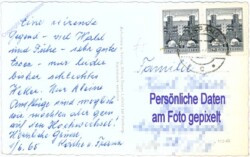 Eine reizende
Gegend - viel Wald
und Ruhe - sehr gutes
- nur leider
bisher schlechtes
Wetter. Nur kleine
Ausflüge sind möglich
wir möchten aber gern
auf den Hochwechsel!
Herzliche Grüsse,
1/6.65
Familie
Persönliche Daten
am Foto gepixelt